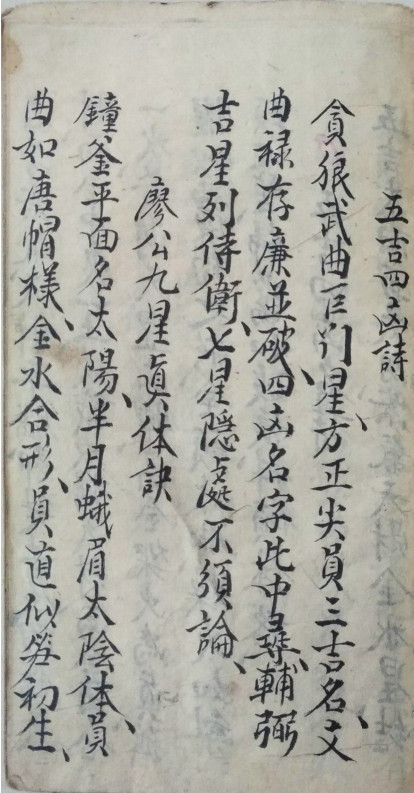 五吉四凶詩
貪狼武曲巨门星、方正尖員三吉名、文
曲禄存廉並破、四凶名字此中尋、輔弼
吉星列侍衛、七星隱處不須論、
廖公九星真体訣
鐘釜平面名太陽、半月蛾眉太陰体、員
曲如唐帽様、金水合形、員直似笋初生、